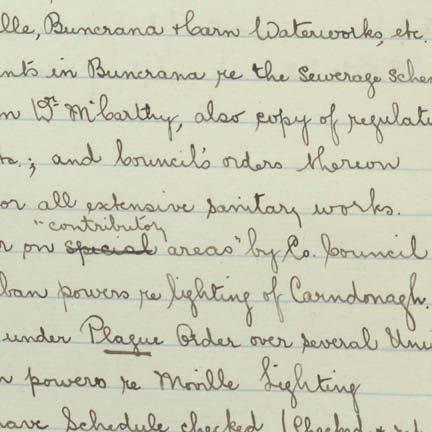 lle, Buncrana & Carn Waterworks, etc.
nts in Buncrana re the sewerage sche
m Dr. McCarthy, also copy of regulati
ts.; and Council's orders thereon
or all extensive sanitary works.
"contributory
r on special areas" by Co. Council
ban powers re lighting of Carndonagh.
under Plague Order over several Uni
n powers re Moville Lighting
have Schedule checked (Checked &